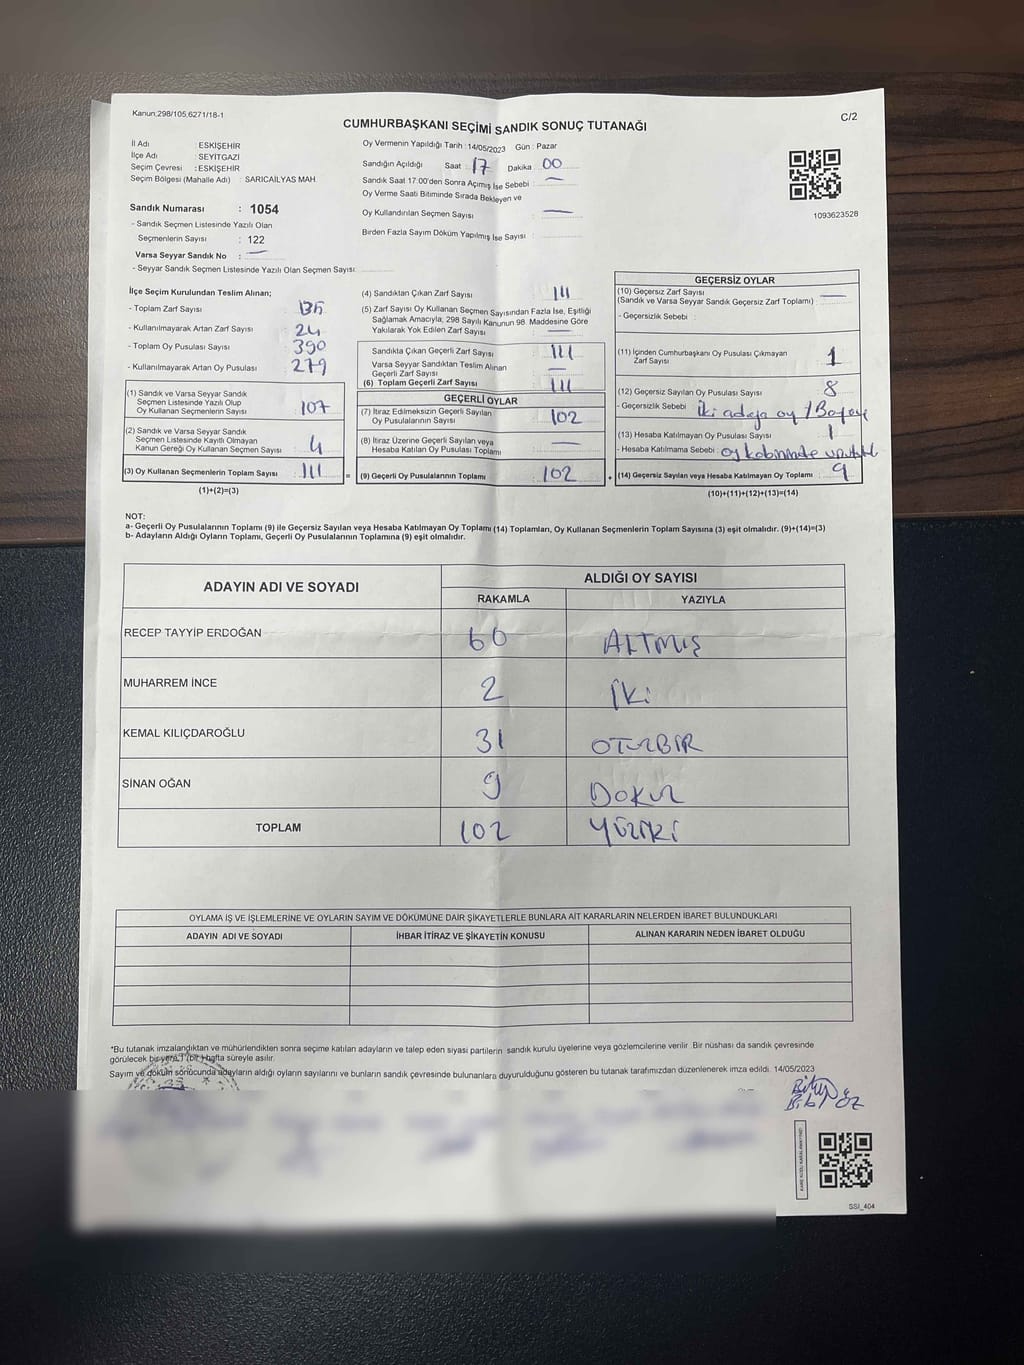 Kanun;298/105,6271/18-1
C/2
CUMHURBAŞKANI SEÇİMİ SANDIK SONUÇ TUTANAĞI
İl Adı : ESKİŞEHİR
İlçe Adı : SEYİTGAZİ
Seçim Çevresi : ESKİŞEHİR
Seçim Bölgesi (Mahalle Adı) : SARICAİLYAS MAH.
Sandık Numarası : 1054
- Sandık Seçmen Listesinde Yazılı Olan
Seçmenlerin Sayısı : 122
Varsa Seyyar Sandık No : —
- Seyyar Sandık Seçmen Listesinde Yazılı Olan Seçmen Sayısı:
Oy Vermenin Yapıldığı Tarih :14/05/2023 Gün : Pazar
Sandığın Açıldığı Saat : 17 Dakika 00
Sandık Saat 17:00'den Sonra Açımış İse Sebebi : —
Oy Verme Saati Bitiminde Sırada Bekleyen ve
Oy Kullandırılan Seçmen Sayısı : —
Birden Fazla Sayım Döküm Yapılmış İse Sayısı :
1093623528
İlçe Seçim Kurulundan Teslim Alınan;
- Toplam Zarf Sayısı : 135
- Kullanılmayarak Artan Zarf Sayısı : 24
- Toplam Oy Pusulası Sayısı : 390
- Kullanılmayarak Artan Oy Pusulası : 279
(1) Sandık ve Varsa Seyyar Sandık
Seçmen Listesinde Yazılı Olup
Oy Kullanan Seçmenlerin Sayısı : 107
(2) Sandık ve Varsa Seyyar Sandık
Seçmen Listesinde Kayıtlı Olmayan
Kanun Gereği Oy Kullanan Seçmen Sayısı : 4
(3) Oy Kullanan Seçmenlerin Toplam Sayısı : 111
(1)+(2)=(3)
(4) Sandıktan Çıkan Zarf Sayısı : 111
(5) Zarf Sayısı Oy Kullanan Seçmen Sayısından Fazla İse, Eşitliği
Sağlamak Amacıyla; 298 Sayılı Kanunun 98. Maddesine Göre
Yakılarak Yok Edilen Zarf Sayısı : —
Sandıkta Çıkan Geçerli Zarf Sayısı : 111
Varsa Seyyar Sandıktan Teslim Alınan
Geçerli Zarf Sayısı : —
(6) Toplam Geçerli Zarf Sayısı : 111
GEÇERLİ OYLAR
(7) İtiraz Edilmeksizin Geçerli Sayılan
Oy Pusulalarının Sayısı : 102
(8) İtiraz Üzerine Geçerli Sayılan veya
Hesaba Katılan Oy Pusulası Toplamı : —
= (9) Geçerli Oy Pusulalarının Toplamı : 102
GEÇERSİZ OYLAR
(10) Geçersiz Zarf Sayısı : —
(Sandık ve Varsa Seyyar Sandık Geçersiz Zarf Toplamı)
- Geçersizlik Sebebi :
(11) İçinden Cumhurbaşkanı Oy Pusulası Çıkmayan
Zarf Sayısı : 1
(12) Geçersiz Sayılan Oy Pusulası Sayısı : 8
- Geçersizlik Sebebi : iki adaya oy /
(13) Hesaba Katılmayan Oy Pusulası Sayısı : 1
- Hesaba Katılmama Sebebi : oy kabininde
(14) Geçersiz Sayılan veya Hesaba Katılmayan Oy Toplamı : 9
(10)+(11)+(12)+(13)=(14)
NOT:
a- Geçerli Oy Pusulalarının Toplamı (9) ile Geçersiz Sayılan veya Hesaba Katılmayan Oy Toplamı (14) Toplamları, Oy Kullanan Seçmenlerin Toplam Sayısına (3) eşit olmalıdır. (9)+(14)=(3)
b- Adayların Aldığı Oyların Toplamı, Geçerli Oy Pusulalarının Toplamına (9) eşit olmalıdır.
ADAYIN ADI VE SOYADI ALDIĞI OY SAYISI
RAKAMLA YAZIYLA
RECEP TAYYİP ERDOĞAN 60 ALTMIŞ
MUHARREM İNCE 2 İKİ
KEMAL KILIÇDAROĞLU 31 OTUZBİR
SİNAN OĞAN 9 DOKUZ
TOPLAM 102 YÜZİKİ
OYLAMA İŞ VE İŞLEMLERİNE VE OYLARIN SAYIM VE DÖKÜMÜNE DAİR ŞİKAYETLERLE BUNLARA AİT KARARLARIN NELERDEN İBARET BULUNDUKLARI
ADAYIN ADI VE SOYADI İHBAR İTİRAZ VE ŞİKAYETİN KONUSU ALINAN KARARIN NEDEN İBARET OLDUĞU
*Bu tutanak imzalandıktan ve mühürlendikten sonra seçime katılan adayların ve talep eden siyasi partilerin sandık kurulu üyelerine veya gözlemcilerine verilir. Bir nüshası da sandık çevresinde
görülecek bir yere 1 (bir) hafta süreyle asılır.
Sayım ve döküm sonucunda adayların aldığı oyların sayılarını ve bunların sandık çevresinde bulunanlara duyurulduğunu gösteren bu tutanak tarafımızdan düzenlenerek imza edildi. 14/05/2023
SSI_404